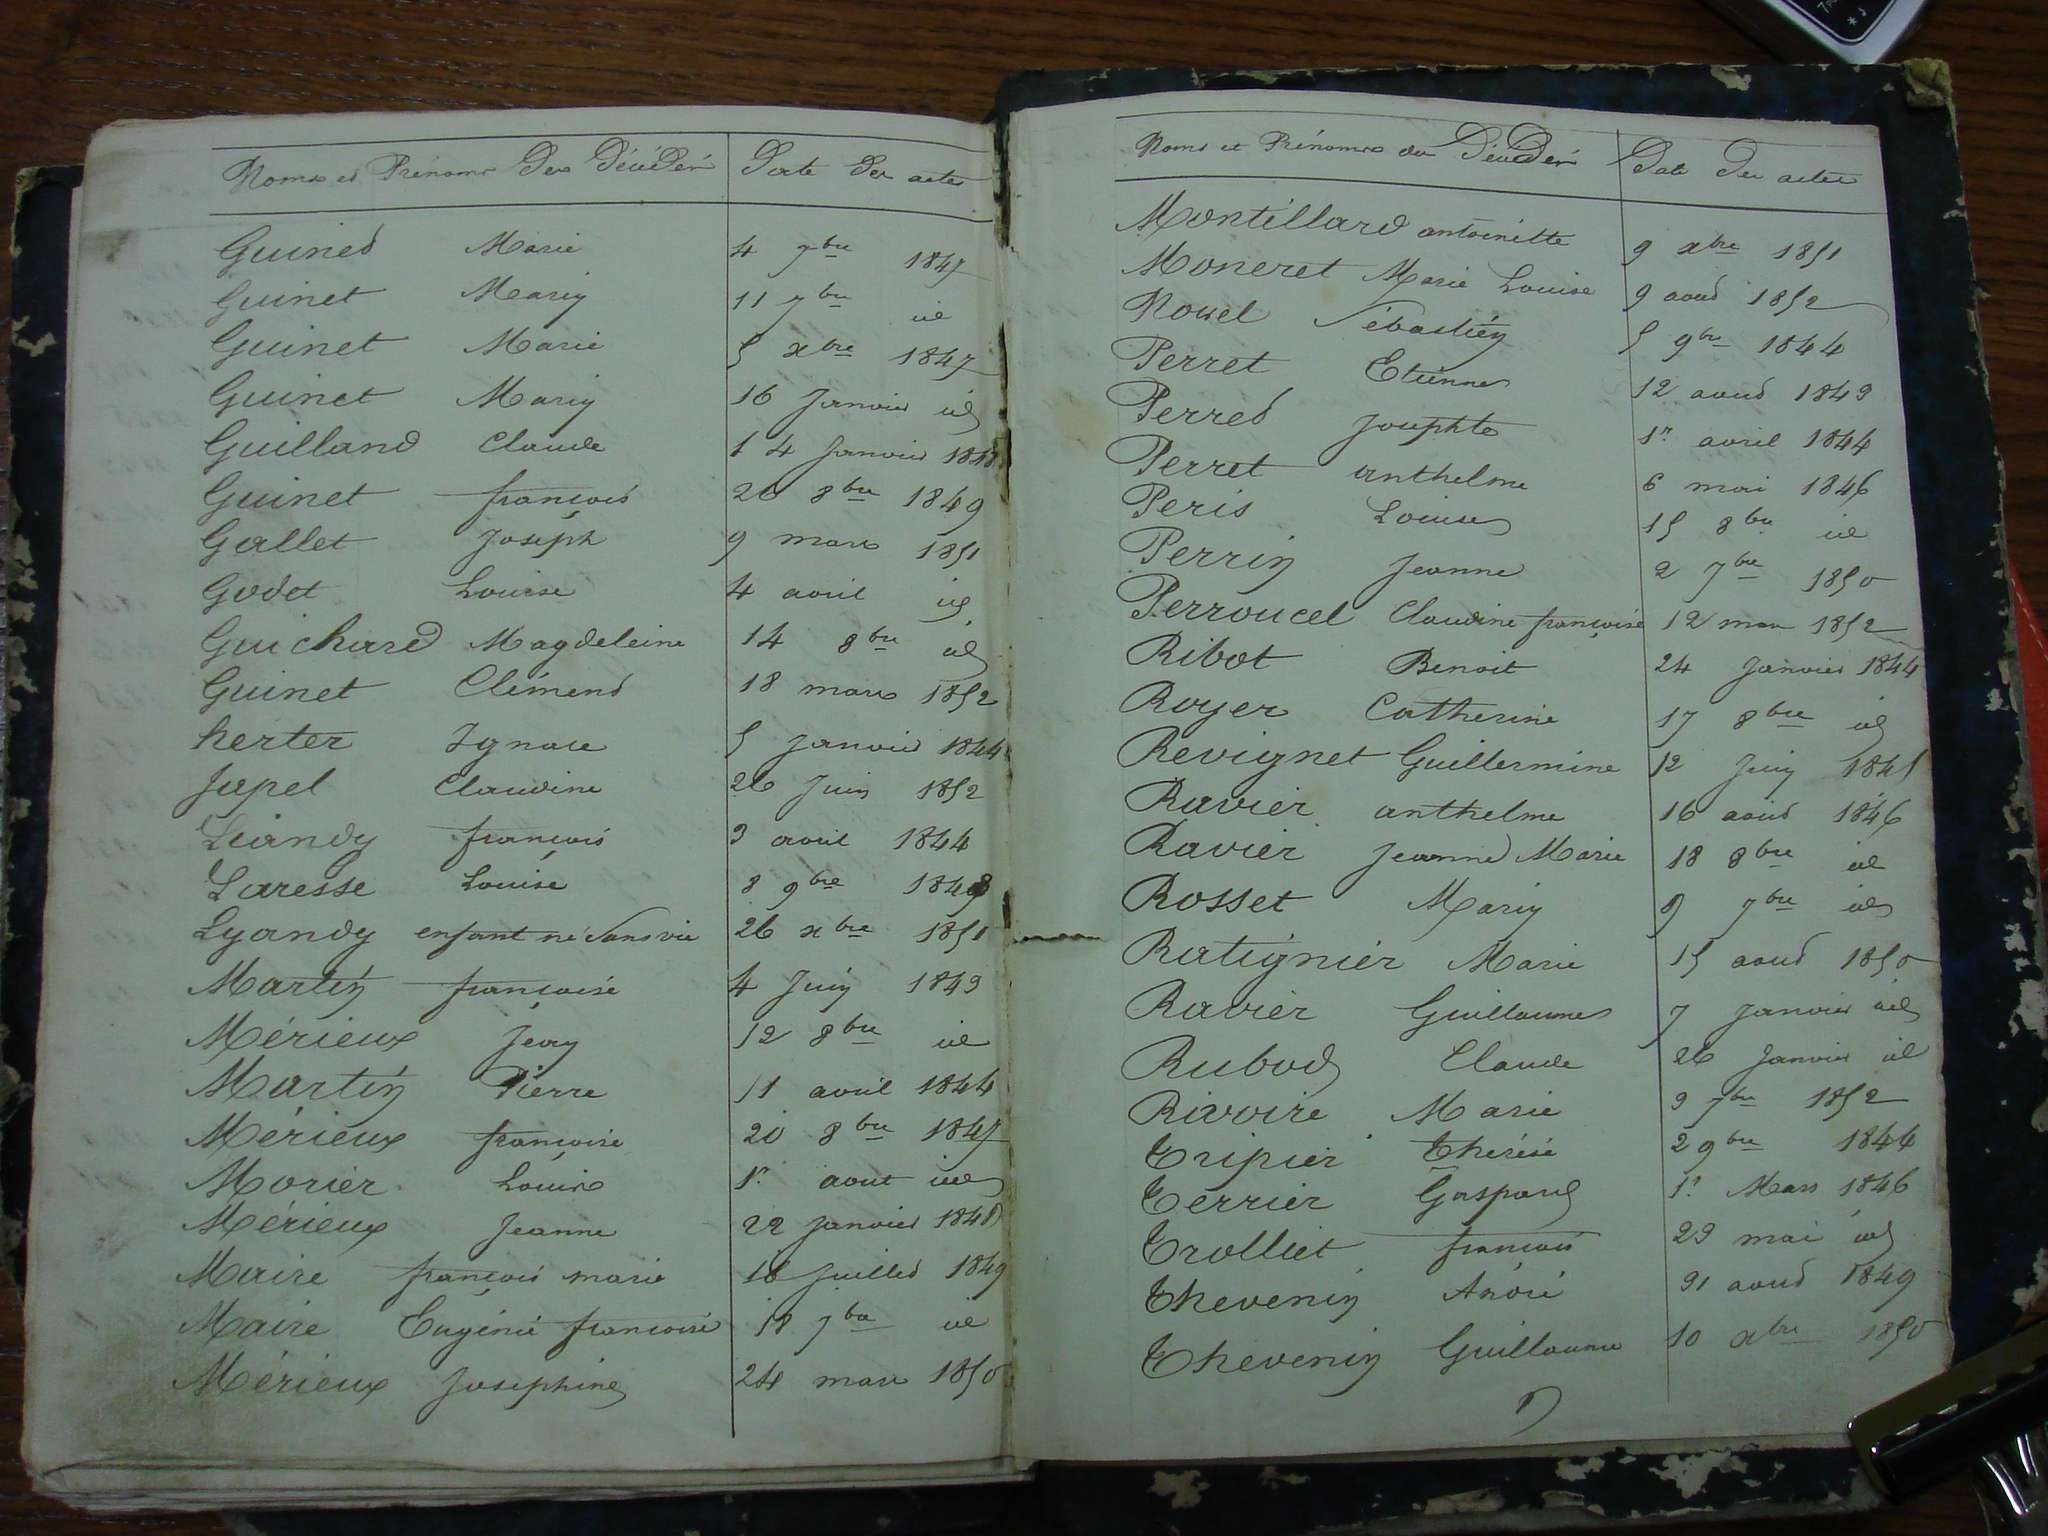 Noms et Prénoms des Décédés Date des actes
Guinet Marie 4 7bre 1847
Guinet Marie 11 7bre id
Guinet Marie 5 xbre 1847
Guinet Marie 16 Janvier id
Guilland Claude 14 Janvier 1848
Guinet françois 26 8bre 1849
Gallet Joseph 9 mars 1851
Godet Louise 4 avril id
Guichard Magdeleine 14 8bre id
Guinet Clément 18 mars 1852
herter Ignace 5 Janvier 1844
Japel Claudine 26 Juin 1852
Liandy françois 3 avril 1844
Laresse Louise 8 9bre
Lyandy enfant né Sans vie 26 xbre 1851
Martin françoise 4 Juin 1843
Mérieux Jean 12 8bre id
Martin Pierre 11 avril 1844
Mérieux françoise 20 8bre 1847
Morier Louise 1r aout id
Mérieux Jeanne 22 Janvier 1848
Maire françois marie 18 Juillet 1849
Maire Eugénie françoise 18 7bre id
Mérieux Joséphine 24 mars 1850
Noms et Prénoms des Décédés Date des actes
Montillard antoinette 9 xbre 1851
Moneret Marie Louise 9 aout 1852
Nouel Sébastien 5 9bre 1844
Perret Etienne 12 aout 1843
Perret Josephte 1r avril 1844
Perret anthelme 6 mai 1846
Peris Louise 15 8bre id
Perrin Jeanne 2 7bre 1850
Perroucel Claudine françoise 12 mars 1852
Ribot Benoit 24 Janvier 1844
Royer Catherine 17 8bre id
Revignet Guillermine 12 Juin 1845
Ravier anthelme 16 aout 1846
Ravier Jeanne Marie 18 8bre id
Rosset Marie 9 7bre id
Ratignier Marie 15 aout 1850
Ravier Guillaume 7 Janvier id
Rubod Claude 26 Janvier id
Rivoire Marie 3 7bre 1852
Tripier Thérèse 2 9bre 1844
Terrier Gaspard 1r Mars 1846
Trolliet françois 23 mai id
Thevenin André 31 aout 1849
Thevenin Guillaume 10 xbre 1850